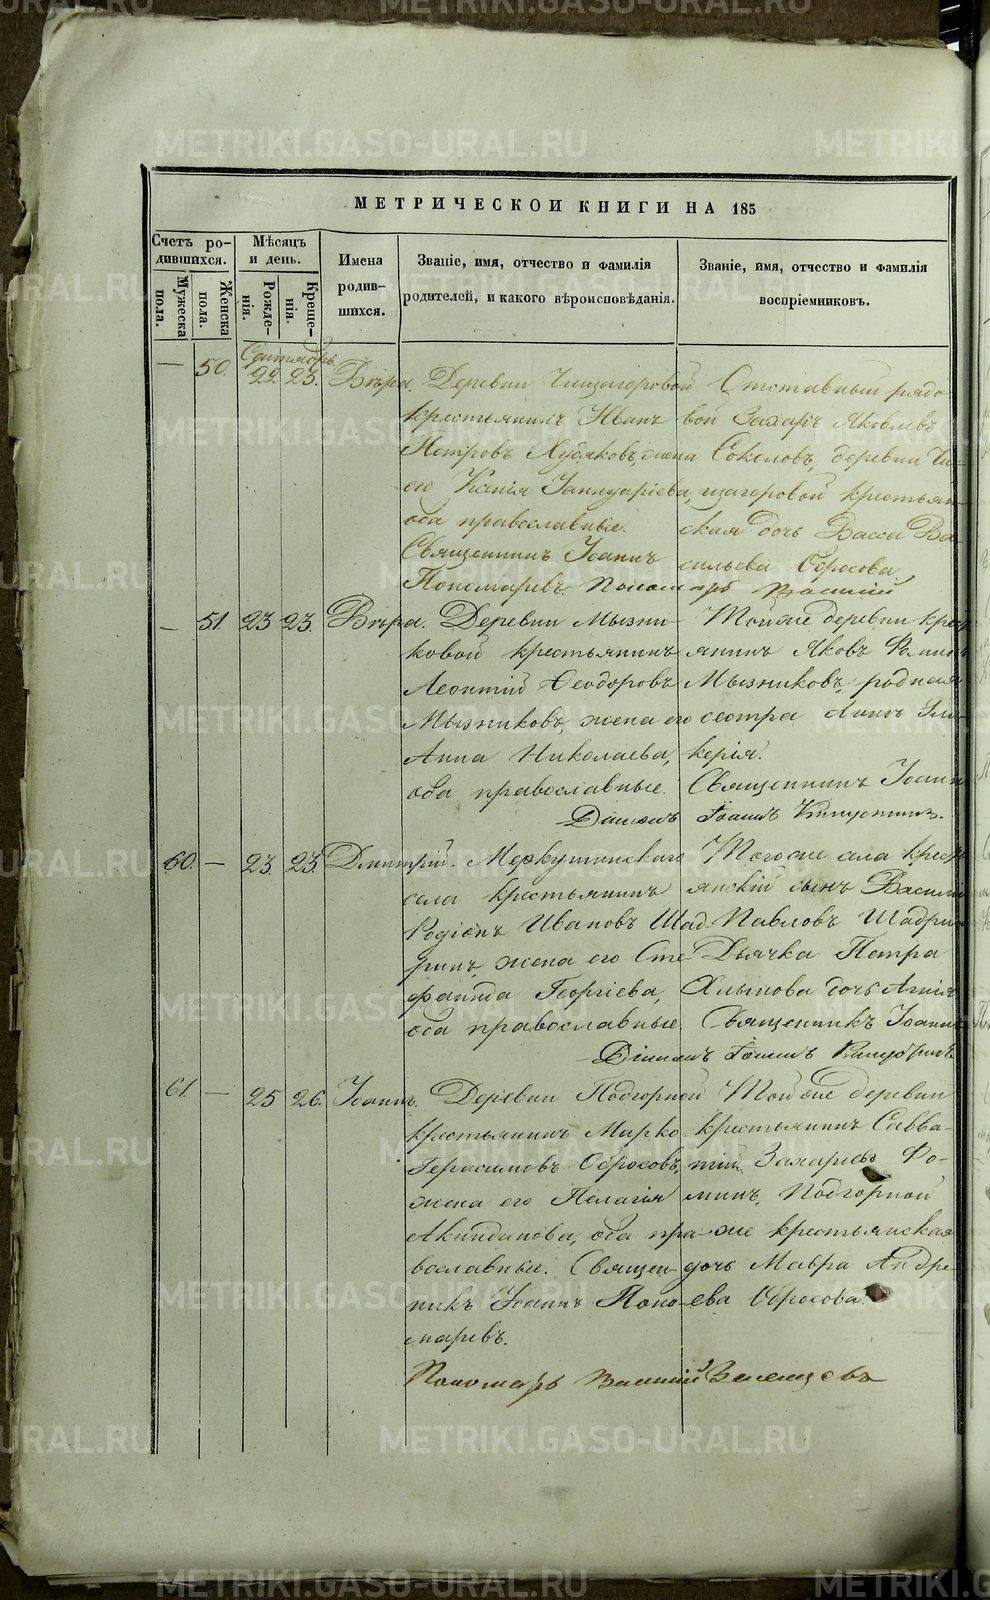 МЕТРИЧЕСКОЙ КНИГИ НА 185
Счетъ ро-
дившихся.
Мѣсяцъ
и день.
Мужеска
пола.
Женска
пола.
Рожде-
нія.
Креще-
нія.
Имена
родив-
шихся.
Званіе, имя, отчество и фамилія
родителей, и какого вѣроисповѣданія.
Званіе, имя, отчество и фамилія
воспріемниковъ.
Сентябрь
— 50. 22. 23. Вѣра.
Деревни Чищагоровой
крестьянинъ Иванъ
Петровъ Худяковъ, жена
его Ксенія Іаннуаріева,
оба православные.
Священникъ Іоаннъ
Пономаревъ. Пономарь Василій
Отставный рядо-
вой Захаръ Яковлевъ
Соколовъ, деревни Чи-
щагоровой крестьян-
ская дочь Васса Ва-
сильева Обросова.
— 51. 23 23. Вѣра.
Деревни Мызни-
ковой крестьянинъ
Леонтій Ѳеодоровъ
Мызниковъ, жена его
Анна Николаева,
оба православные.
Тойже деревни крес
янинъ Яковъ
Мызниковъ, родная
сестра Гли-
керія.
Священникъ Іоаннъ
Діаконъ Іоаннъ
60. — 23. 23. Дмитрій.
Меркушинскаго
села крестьянинъ
Родіонъ Ивановъ Шад-
ринъ, жена его Сте-
фанида Георгіева,
оба православные.
Тогоже села крест
янскій сынъ Василій
Павловъ Шадрин
Дьячка Петра
Хлынова дочь Агнія
Священникъ Іоаннъ
Діаконъ Іоаннъ
61. — 25 26. Іоаннъ.
Деревни Подгорной
крестьянинъ Мирко
Герасимовъ Обросовъ,
жена его Пелагія
Акиндинова, оба пра-
вославные. Священ-
никъ Іоаннъ Поно-
маревъ.
Тойже деревни
крестьянинъ Савва-
тій Захаровъ Ѳо-
минъ, Подгорной
же крестьянская
дочь Мавра Андре-
ева Обросова.
Пономарь Василій
METRIKI.GASO-URAL.RU